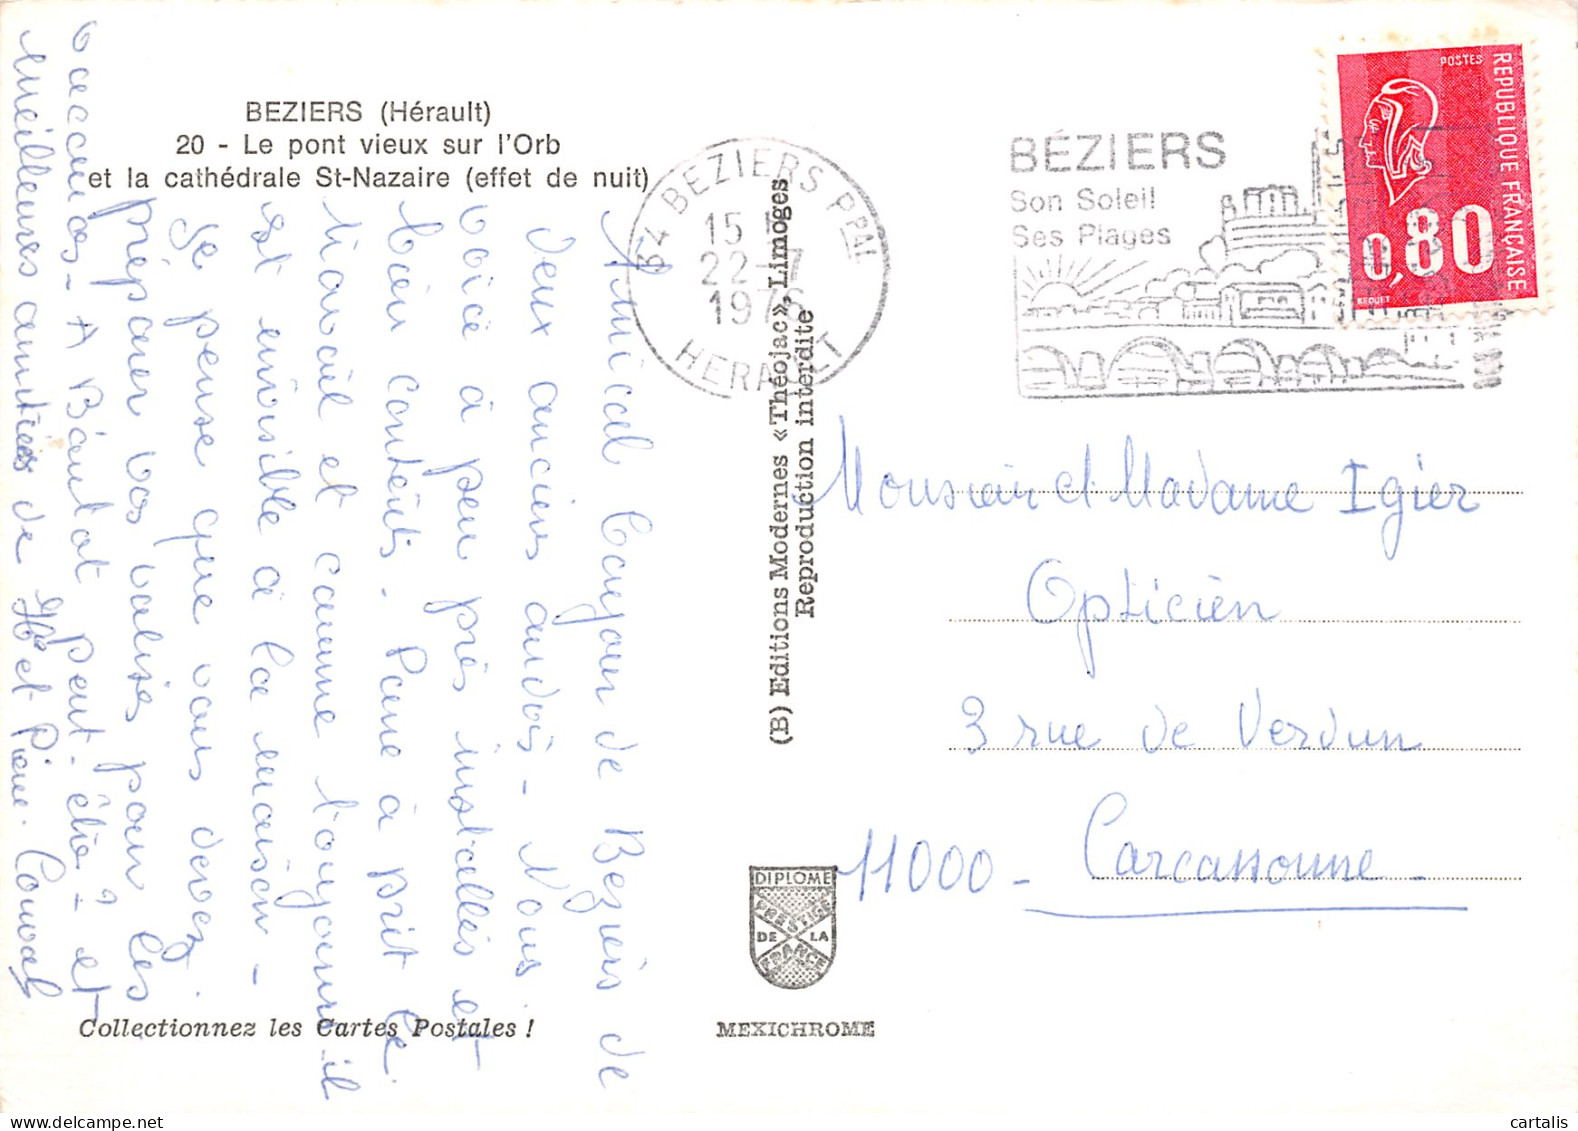 BEZIERS (Hérault)
20 - Le pont vieux sur l'Orb
et la cathédrale St-Nazaire (effet de nuit)
Amical Bonjour de Beziers de
deux anciens audois - Nous
voici à peu près installés et
bien contents. Pierre a prit le
travail et comme toujours il
est invisible à la maison -
Je pense que vous devez
préparer vos valises pour les
vacances - A Bientot peut-être ? et
meilleures amitiés de
et Pierre
34 BEZIERS PPAL
15 H
22-7
1976
HERAULT
BÉZIERS
Son Soleil
Ses Plages
POSTES
REPUBLIQUE FRANÇAISE
0,80
BEQUET
(B) Editions Modernes «Théojac», Limoges
Reproduction interdite
Monsieur et Madame Igier
Opticien
3 rue de Verdun
11000 - Carcassonne -
DIPLOME
PRESTIGE
DE LA
FRANCE
Collectionnez les Cartes Postales !
MEXICHROME
cartalis
delcampe.net